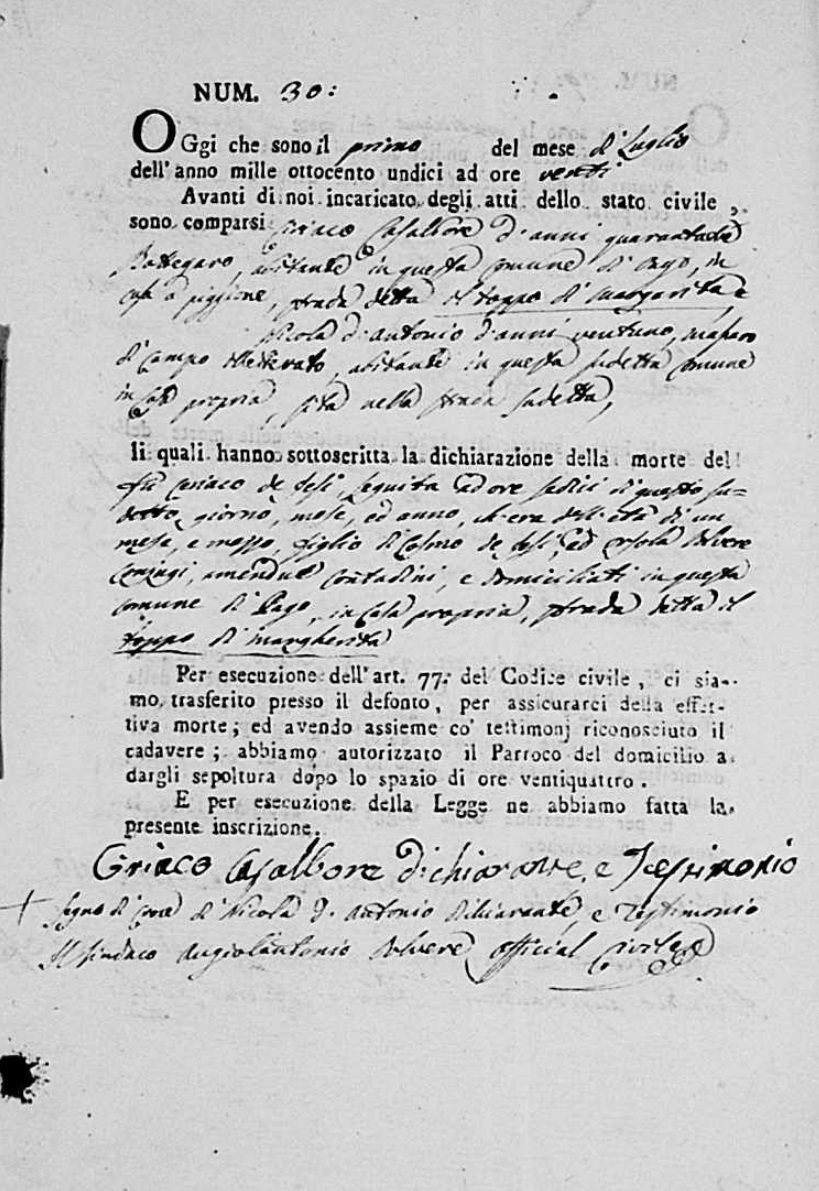 NUM. 30:
OGgi che sono il primo del mese di Luglio
dell' anno mille ottocento undici ad ore venti
Avanti di noi incaricato degli atti dello stato civile,
sono comparsi Ciriaco Casalbore d'anni quarantadue
Bottegaro, abitante in questa comune di Pago, in
casa a piggione, strada detta il toppo di margarita e
Nicola d'Antonio d'anni ventuno,
di campo illetterato, abitante in questa sudetta comune
in casa propria, sita nella strada sudetta,
li quali hanno sottoscritta la dichiarazione della morte del
fù Ceriaco de Gesù, seguita ad ore sedici di questo su=
detto giorno, mese, ed anno, ch'era dell'età di un
mese, e mezzo, figlio di Cosmo de Gesù, ed Orsola Polvere
Conjugi, amendue contadini, e domiciliati in questa
comune di Pago, in casa propria, strada detta il
toppo di margherita
Per esecuzione dell'art. 77. del Codice civile, ci sia-
mo trasferito presso il defonto, per assicurarci della effet-
tiva morte; ed avendo assieme co' testimonj riconosciuto il
cadavere; abbiamo autorizzato il Parroco del domicilio a
dargli sepoltura dopo lo spazio di ore ventiquattro.
E per esecuzione della Legge ne abbiamo fatta la
presente inscrizione.
Ciriaco Casalbore Dichiarante, e Testimonio
+ Segno di Croce di Nicola d'Antonio Dichiarante, e Testimonio
Il Sindaco Angiolantonio Polvere Official Civile